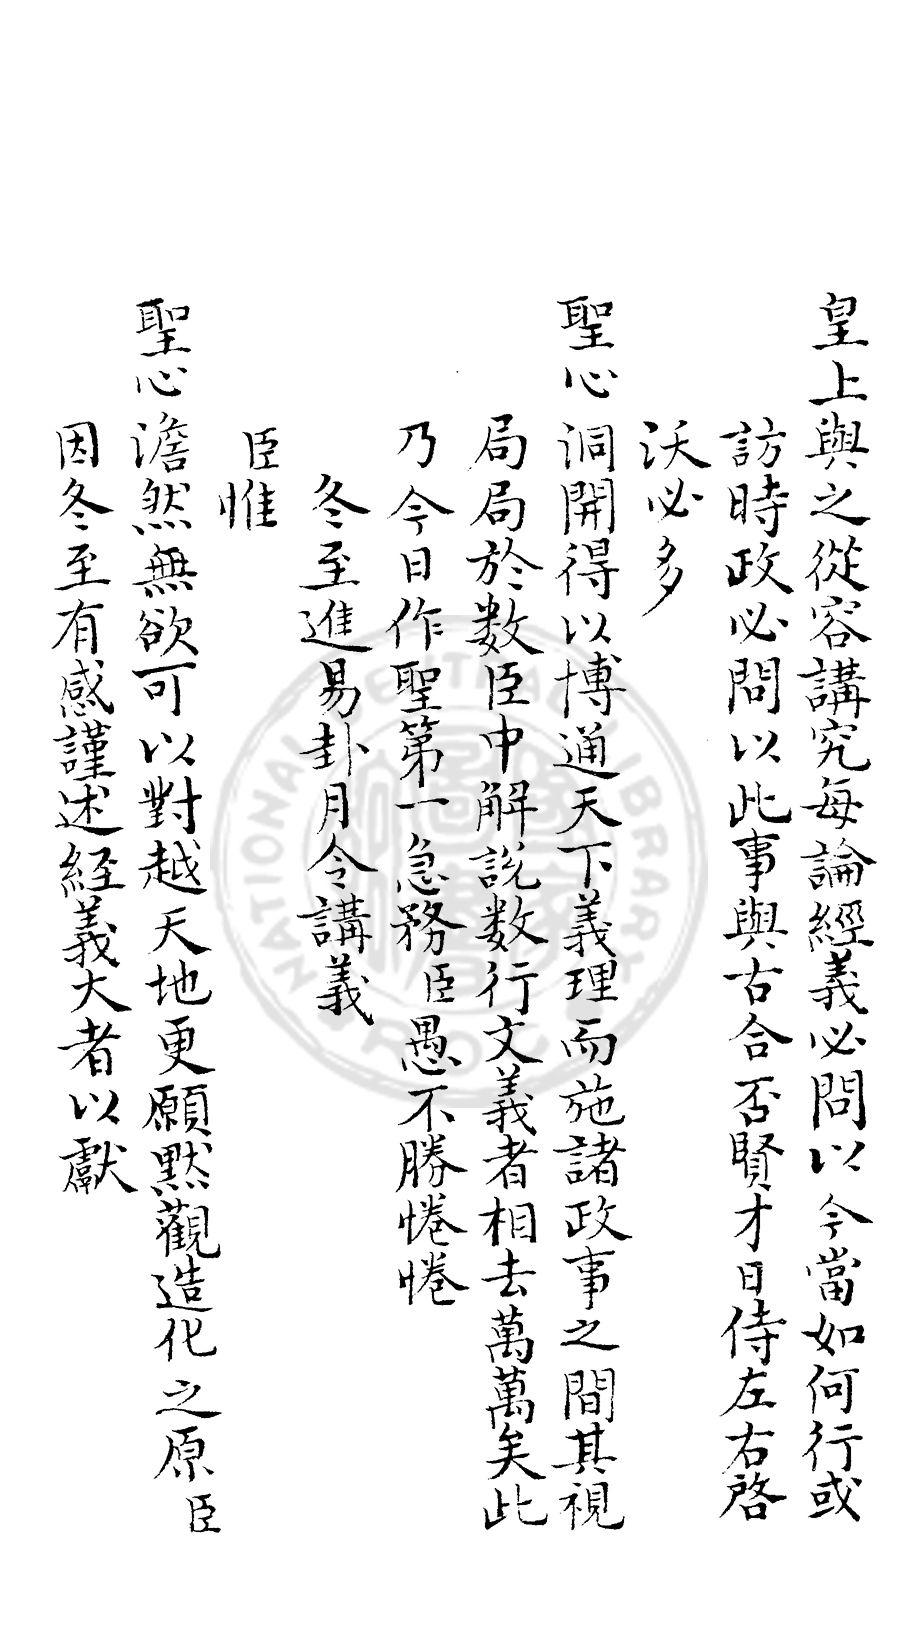 皇上與之從容講究每論經義必問以今當如何行或
訪時政必問以此事與古合否賢才日侍左右啓
沃必多
聖心洞開得以博通天下義理而施諸政事之間其視
局局於数臣中解說数行文義者相去萬萬矣此
乃今日作聖第一急務臣愚不勝惓惓
冬至進易卦月令講義
臣惟
聖心澹然無欲可以對越天地更願默觀造化之原臣
因冬至有感謹述經義大者以獻
NATIONAL CENTRAL LIBRARY